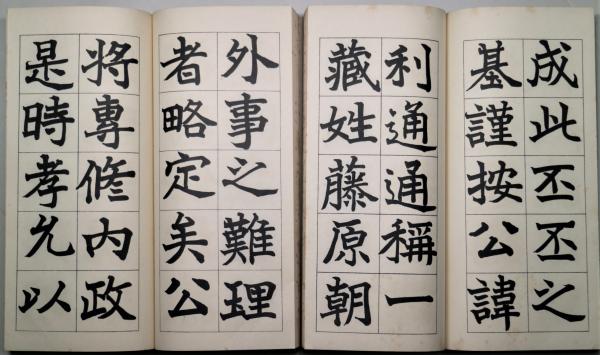 成此丕丕之
基謹按公諱
利通通稱一
藏姓藤原朝
外事之難理
者略定矣公
將專修內政
是時孝允以